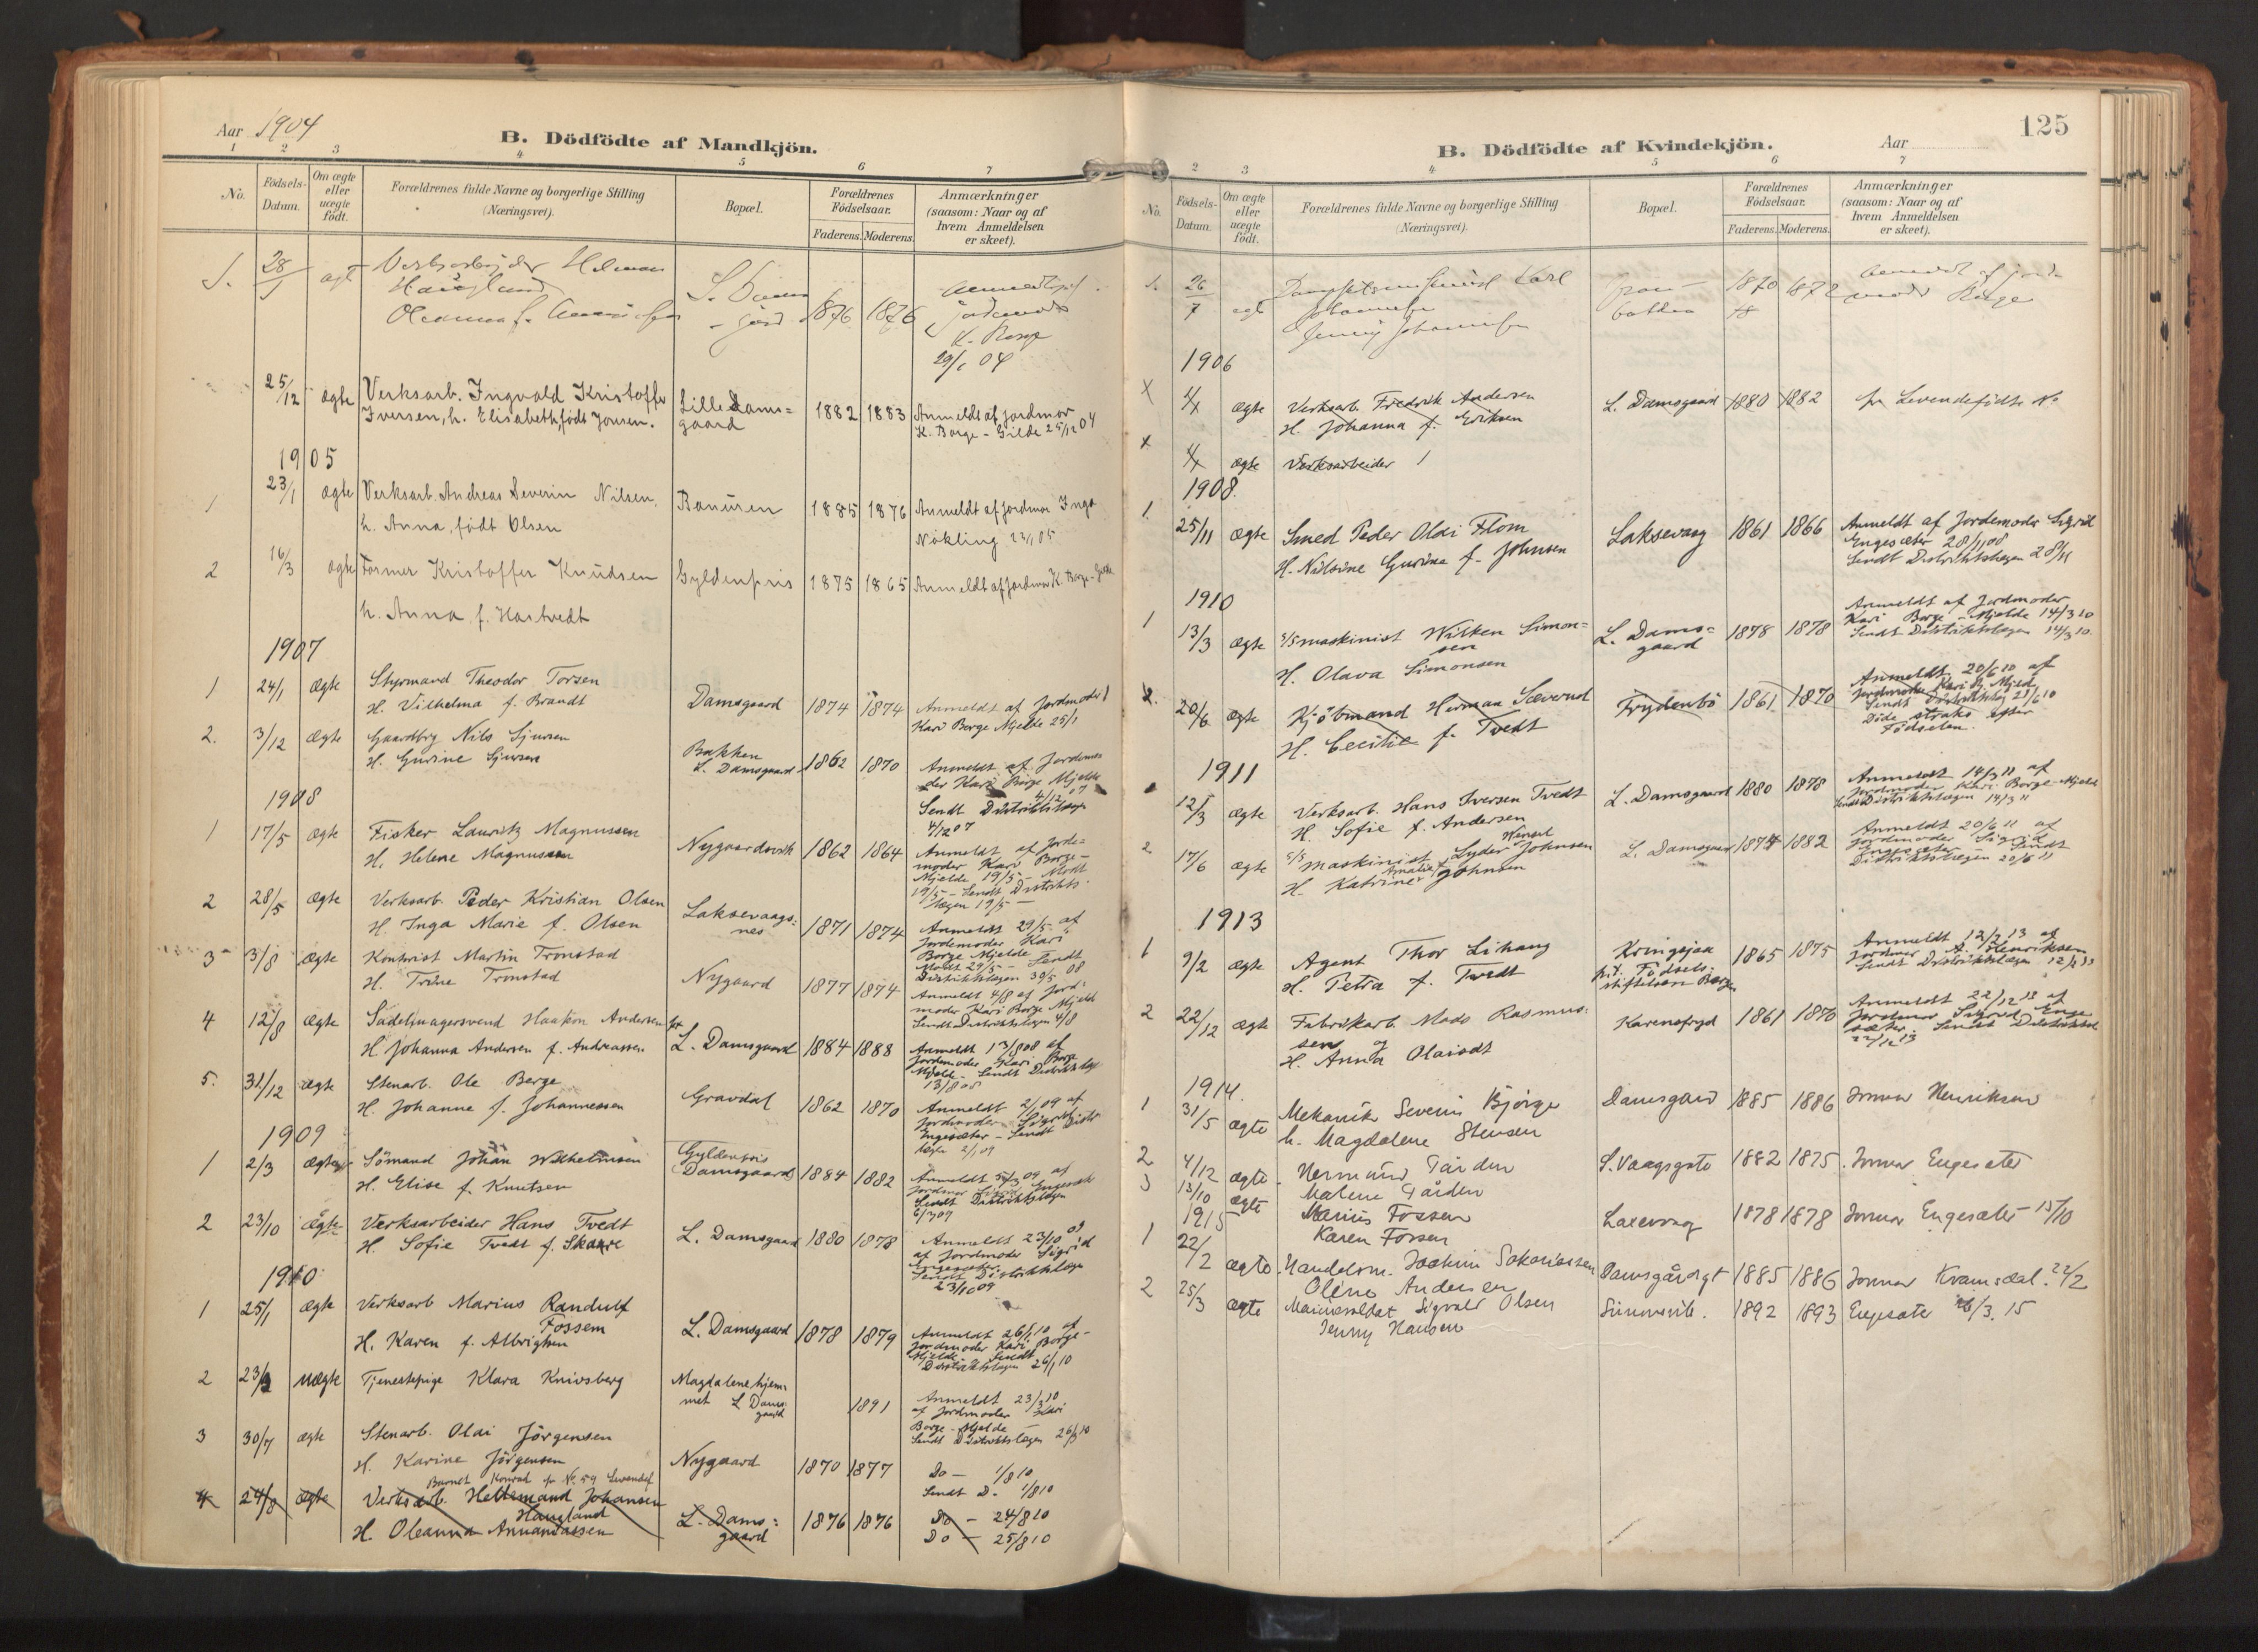 Aar 1904
B. Dödfödte af Mandkjön.
1 2 3 4 5 6 7
No.
Födsels-Datum.
Om ægte eller uægte födt.
Forældrenes fulde Navne og borgerlige Stilling (Næringsvei).
Bopæl.
Forældrenes Födselsaar.
Faderens. Moderens.
Anmærkninger (saasom: Naar og af hvem Anmeldelsen er skeet).
1. 28/1 ægt
Haugland
1876 1876
K. Borge
29/1 04
25/12 ægte Verksarb. Ingvald Kristoffer Lille Dams= 1882 1883 Anmeldt af jordmor
Iversen, h. Elisabeth, født Jonsen. gaard K. Borge - Gilde 25/12 04
1905
1 23/1 ægte Verksarb. Andreas Severin Nilsen, 1885 1876 Anmeldt af jordmor Inga
h. Anna, født Olsen Nökling 23/1 05
2 16/3 ægte Former Kristoffer Knudsen Gyldenpris 1875 1865 Anmeldt af jordmor K. Borge
h. Anna f. Hastvedt
1907
1 24/1 ægte Styrmand Theodor Torsen Damsgaard 1874 1874 Anmeldt af Jordmoder
H. Vilhelma f. Brandt Kari Borge Mjelde 25/1
2. 3/12 ægte Gaardbrg Nils Sjursen Bakken 1862 1870 Anmeldt af Jordemo
H. Gurine Sjursen L. Damsgaard der Kari Borge Mjelde
4/12 07
Sendt Distriktslægen
4/12 07
1908
1 17/5 ægte Fisker Lauritz Magnussen Nygaardsvik 1862 1864 Anmeldt af Jorde-
H. Helene Magnussen moder Kari Borge-
Mjelde 19/5 - Modt
19/5 - Sendt Distrikts-
lægen 19/5 -
2 28/5 ægte Verksarb. Peder Kristian Olsen Laksevaags= 1871 1874 Anmeldt 29/5 af
H. Inga Marie f. Olsen nes Jordemoder Kari
Borge Mjelde
Modt 29/5 - Sendt
Distriktslægen 30/5 08
3 3/8 ægte Kontorist Martin Tronstad Nygaard 1877 1874 Anmeldt 4/8 af Jord=
H. Trine Tronstad moder Kari Borge Mjelde
Sendt Distriktslægen 4/8
4 12/8 ægte Sadelmagersvend Haakon Andersen L. Damsgaard 1884 1888 Anmeldt 13/8 08 af
H. Johanna Andersen f. Andreassen Jordmoder Kari Borge
Mjelde - Sendt Distriktslæg
13/8 08
5. 31/12 ægte Stenarb. Ole Berge Gravdal 1862 1870 Anmeldt 2/1 09 af
H. Johanne f. Johannessen Jordmoder Sigrid
Engesæter - Sendt Distr
lægen 2/1 09
1909
1 2/3 ægte Sömand Johan Wilhelmsen Gyldenpris 1884 1882 Anmeldt 5/3 09 af
H. Elise f. Knutsen Damsgaard Jordmor Sigrid Engesæt
Sendt Distriktslægen
6/3 09
2 23/10 ægte Verksarbeider Hans Tvedt L. Damsgaard 1880 1878 Anmeldt 23/10 09
H. Sofie Tvedt f. Skaare af Jordmoder Sigrid
Engesæter.
Sendt Distriktslægen
23/10 09
1910
1 25/1 ægte Verksarb Marius Randulf L. Damsgaard 1878 1879 Anmeldt 26/1 10 af
Fossem
H. Karen f. Albrigtsen Jordmoder Kari Borge-
Mjelde - Sendt
Distriktslægen 26/1 10
2 23/3 uægte Tjenestepige Klara Knivsberg Magdalenehjem= 1891 Anmeldt 23/3 10
met L Dams= af Jordmoder Kari
gaard Borge - Mjelde -
Sendt Distriktslægen 26/3 10
3 30/7 ægte Stenarb. Olai Jörgensen Nygaard 1870 1877 Do - 1/8 10
H. Karine Jörgensen Sendt D. 1/8 10
Barnet Konrad fr No 59 Levendef
4 24/8 ægte Verksarb. Hellemand Johansen L. Dams= 1876 1876 Do - 24/8 10
Haugland
H. Oleanna Annaniassen gaard Do - 25/8 10
125
B. Dödfödte af Kvindekjön.
Aar
2 3 4 5 6 7
No.
Födsels-Datum.
Om ægte eller uægte födt.
Forældrenes fulde Navne og borgerlige Stilling (Næringsvei).
Bopæl.
Forældrenes Födselsaar.
Faderens. Moderens.
Anmærkninger (saasom: Naar og af hvem Anmeldelsen er skeet).
1. 26/7 Karl 1870 1872
Johannesen
Jenny Johannesen
1906
X ægte Verksarb. Fredrik Andersen L. Damsgaard 1880 1882 fr Levendefödte No
H. Johanna f. Eriksen
X ægte Verksarbeider
1908.
1. 25/11 ægte Smed Peder Olai Flom Laksevaag 1861 1866 Anmeldt af Jordemoder Sigrid
H. Nilsine Gurina f. Johnsen Engesæter 28/11 08
Sendt Distriktslægen 28/11
1910
1 13/3 ægte S/S maskinist Wilken Simon= L. Dams= 1878 1878 Anmeldt af Jordmoder
sen gaard Kari Borge - Mjelde 14/3 10
H. Olava Simonsen Sendt Distriktslægen 14/3 10
2. 20/6 ægte Kjöbmand Herman Sæverud Frydenbö 1861 1870 Anmeldt 20/6 10 af
H. Cecilie f. Tvedt Jordmoder Kari B. Mjeld
Sendt Distriktslæg 21/6 10
Döde straks efter
Födselen.
1911
12/3 ægte Verksarb. Hans Iversen Tvedt L. Damsgaard 1880 1878 Anmeldt 14/3 11 af
H. Sofie f. Andersen Jordmoder Kari Borge-Mjelde
Sendt Distriktslægen 14/3 11
2 17/6 ægte S/S maskinist Lyder Johnsen L. Damsgaard 1874 1882 Anmeldt 20/6 11 af
H. Katrine Amalie Johnsen Jordmoder Sigrid
Engesæter - Sendt
Distriktslægen 20/6 11
1913
1 9/2 ægte Agent Thor Lihaug Kringsjaa 1865 1875 Anmeldt 12/2 13 af
H. Petra f. Tvedt Födsels- Jordmor A. Henriksen
stiftelsen Bergen Sendt Distriktslægen 12/2 13
2 22/12 ægte Fabrikarb. Mads Rasmus= Karensfryd 1861 1870 Anmeldt 22/12 13 af
sen og Jordmor Sigrid Enge
H. Anna Olaisdt sæter. Sendt Distriktsl
22/12 13
1914.
1 31/5 ægte Mekanik Severin Bjørge Damsgaard 1885 1886 Jormor Henriksen
h. Magdalene Stensen
2 4/12 ægte Hermund Gården S. Vaagsgate 1882 1875. Jormor Engesæter
3 13/10 ægte Malene Gården
1915 Marius Fossen Laxevaag 1878 1878 Jormor Engesæter 15/10
Karen Fossen
1 22/2 ægte Handelsm. Joakim Sakariassen Damsgårdsgt 1885 1886 Jormor Kvamsdal. 22/2
Oline Andersen
2 25/3 ægte Marinesoldat Sigvald Olsen 1892 1893 Engesæter 26/3. 15
Jenny Hansen